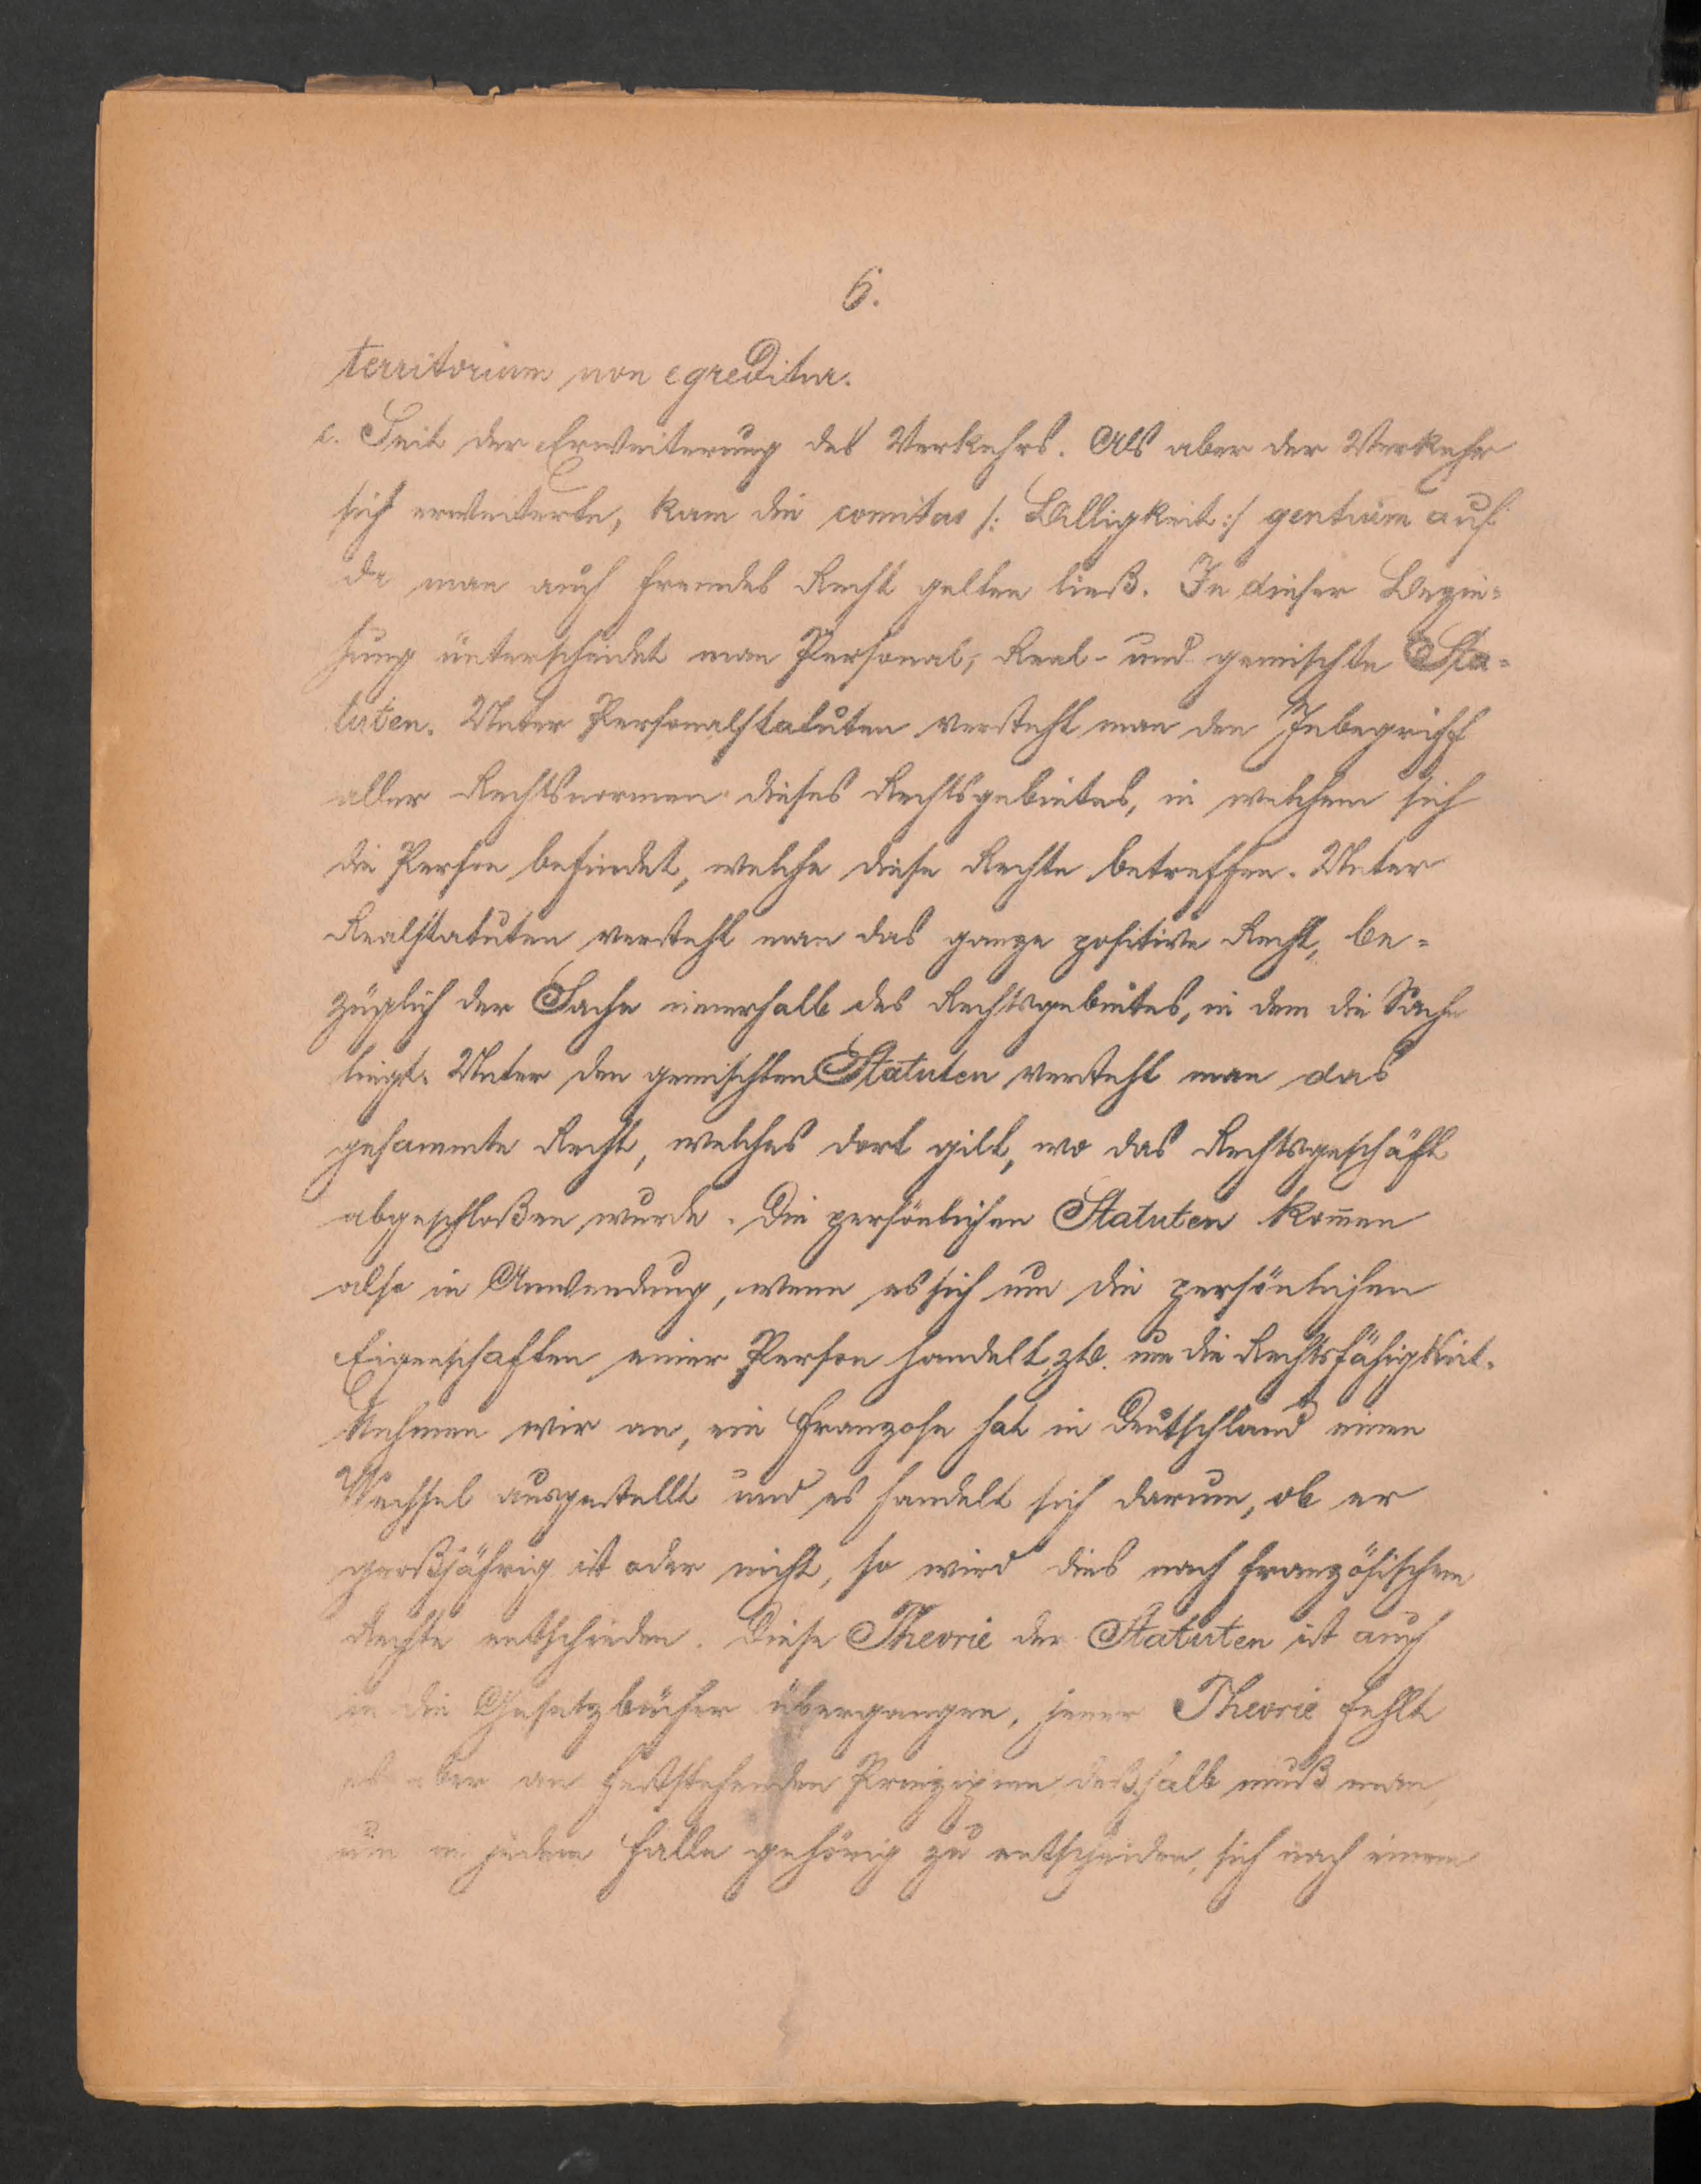 6.
territorium non egreditur.
c. Seit der Erweiterung des Verkehrs. Als aber der Verkehr
sich erweiterte, kam die comitas /: Billigkeit :/ gentium auf
da man auch fremdes Recht gelten ließ. In dieser Bezie=
hung unterscheidet man Personal-, Real- und gemischte Sta=
tuten. Unter Personalstatuten versteht man den Inbegriff
aller Rechtsnormen dieses Rechtsgebietes, in welchem sich
die Person befindet, welche diese Rechte betreffen. Unter
Realstatuten versteht man das ganze positive Recht, be=
züglich der Sache innerhalb des Rechtsgebietes, in dem die Sache
liegt. Unter den gemischten Statuten versteht man das
gesammte Recht, welches dort gilt, wo das Rechtsgeschäft
abgeschloßen wurde. Die persönlichen Statuten kom̅en
also in Anwendung, wenn es sich um die persönlichen
Eigenschaften einer Person handelt, zB. um die Rechtsfähigkeit.
Nehmen wir an, ein Franzose hat in Deutschland einen
Wechsel ausgestellt und es handelt sich darum, ob er
großjährig ist oder nicht, so wird dies nach französischem
Rechte entschieden. Diese Theorie der Statuten ist auch
in die Gesetzbücher übergangen, jener Theorie fehlt
es aber an feststehenden Prinzipien deßhalb muß man,
um in jedem Falle gehörig zu entscheiden, sich nach einem